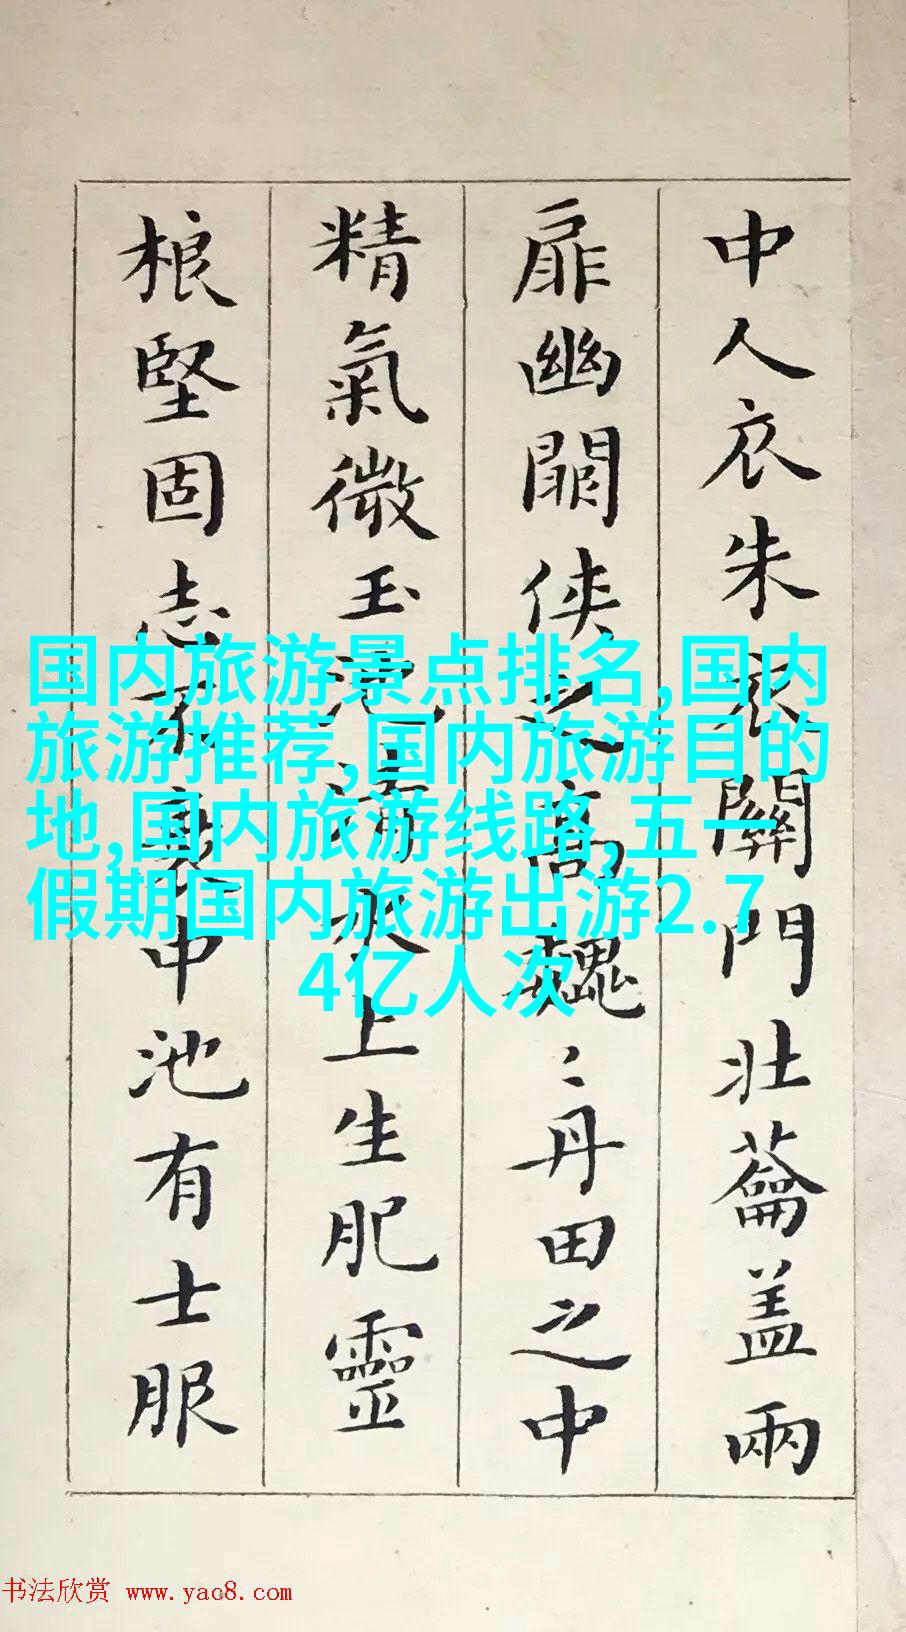 中人衣朱衣關門壯蘥盖兩
扉幽闕侠之高魏〻丹田之中
精氣微玉池清水上生肥靈
根堅固志不衰中池有士服
国内旅游景点排名,国内
旅游推荐,国内旅游目的
地,国内旅游线路,五一
假期国内旅游出游2.7
4亿人次
书法欣赏 www.yac8.com